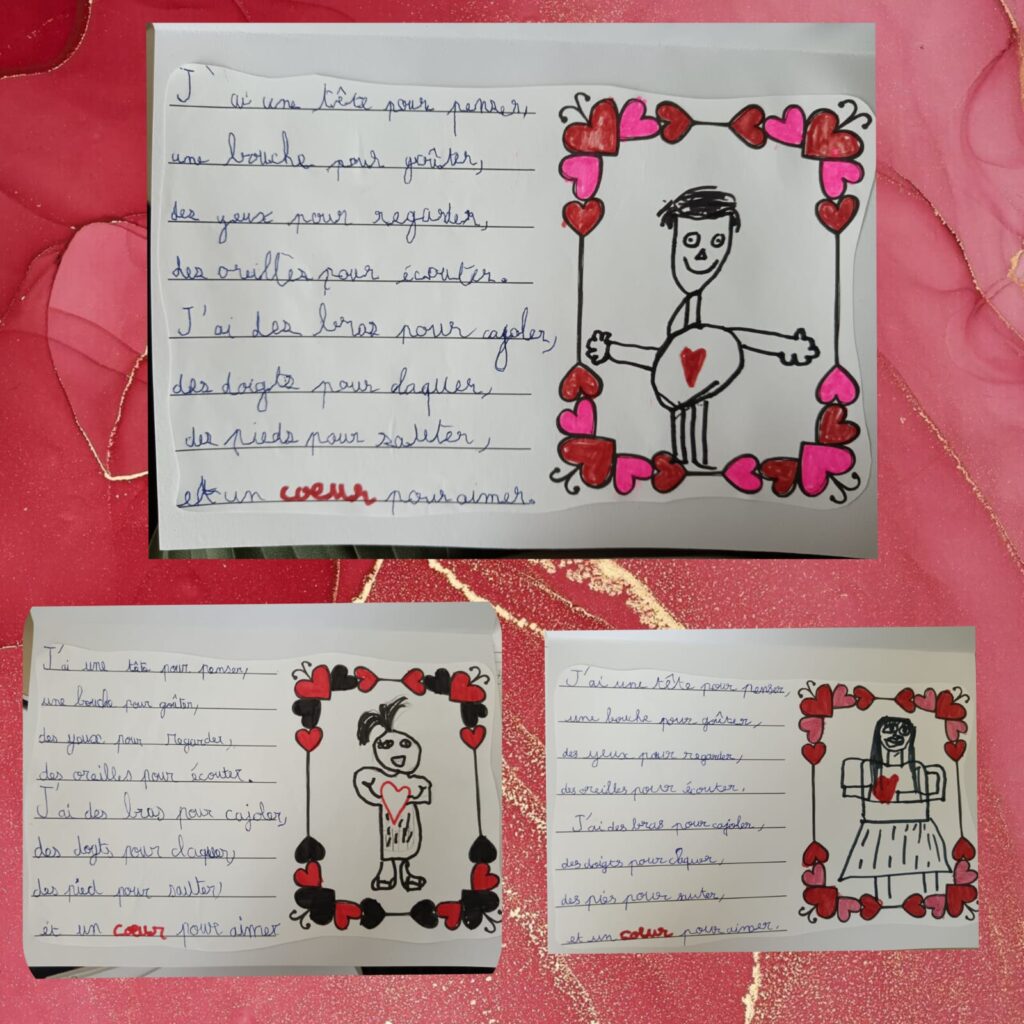 J'ai une tête pour penser,
une bouche pour goûter,
des yeux pour regarder,
des oreilles pour écouter.
J'ai des bras pour cajoler,
des doigts pour claquer,
des pieds pour sauter,
et un coeur pour aimer.
J'ai une tête pour penser,
une bouche pour goûter,
des yeux pour regarder,
des oreilles pour écouter.
J'ai des bras pour cajoler,
des dogts pour claquer,
des pied pour sauter,
et un coeur pour aimer
J'ai une tête pour penser,
une bouche pour goûter,
des yeux pour regarder,
des oreilles pour écouter.
J'ai des bras pour cajoler,
des doigts pour claquer,
des piés pour sauter,
et un coeur pour aimer.